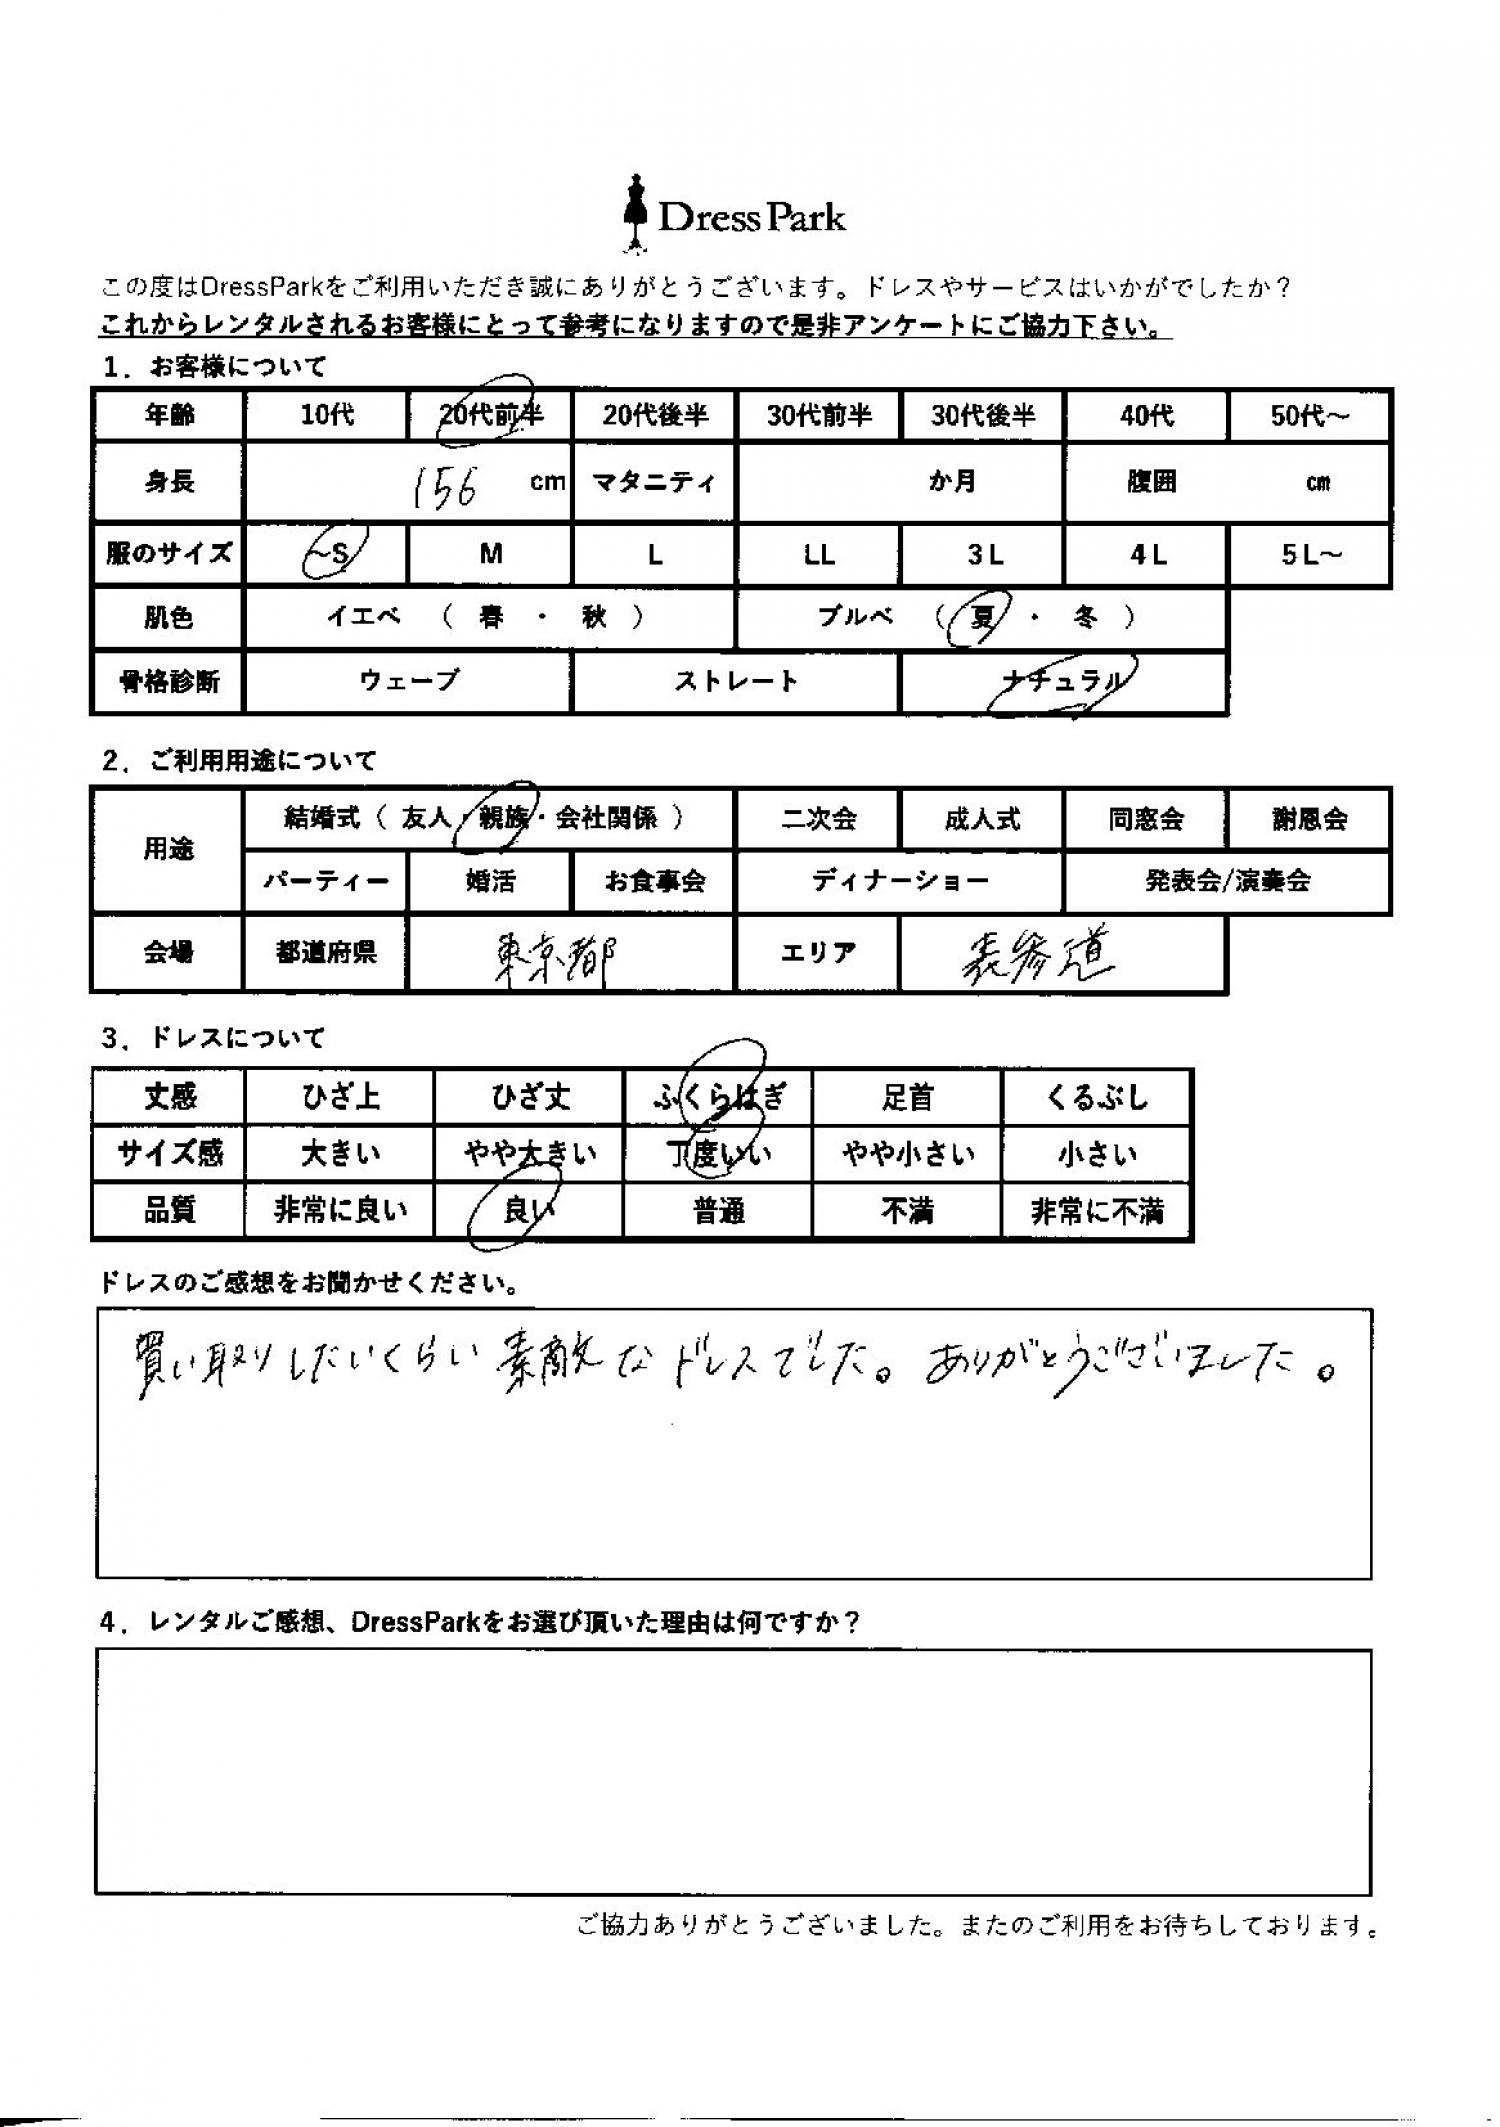 Dress Park
この度はDressParkをご利用いただき誠にありがとうございます。ドレスやサービスはいかがでしたか？
これからレンタルされるお客様にとって参考になりますので是非アンケートにご協力下さい。
1．お客様について
年齢 10代 20代前半 20代後半 30代前半 30代後半 40代 50代～
身長 156 cm マタニティ か月 腹囲 cm
服のサイズ ～S M L LL 3L 4L 5L～
肌色 イエベ （ 春 ・ 秋 ） ブルベ （ 夏 ・ 冬 ）
骨格診断 ウェーブ ストレート ナチュラル
2．ご利用用途について
用途 結婚式（ 友人・親族・会社関係 ） 二次会 成人式 同窓会 謝恩会
パーティー 婚活 お食事会 ディナーショー 発表会/演奏会
会場 都道府県 東京都 エリア 表参道
3．ドレスについて
丈感 ひざ上 ひざ丈 ふくらはぎ 足首 くるぶし
サイズ感 大きい やや大きい 丁度いい やや小さい 小さい
品質 非常に良い 良い 普通 不満 非常に不満
ドレスのご感想をお聞かせください。
買い取りしたいくらい素敵なドレスでした。ありがとうございました。
4．レンタルご感想、DressParkをお選び頂いた理由は何ですか？
ご協力ありがとうございました。またのご利用をお待ちしております。